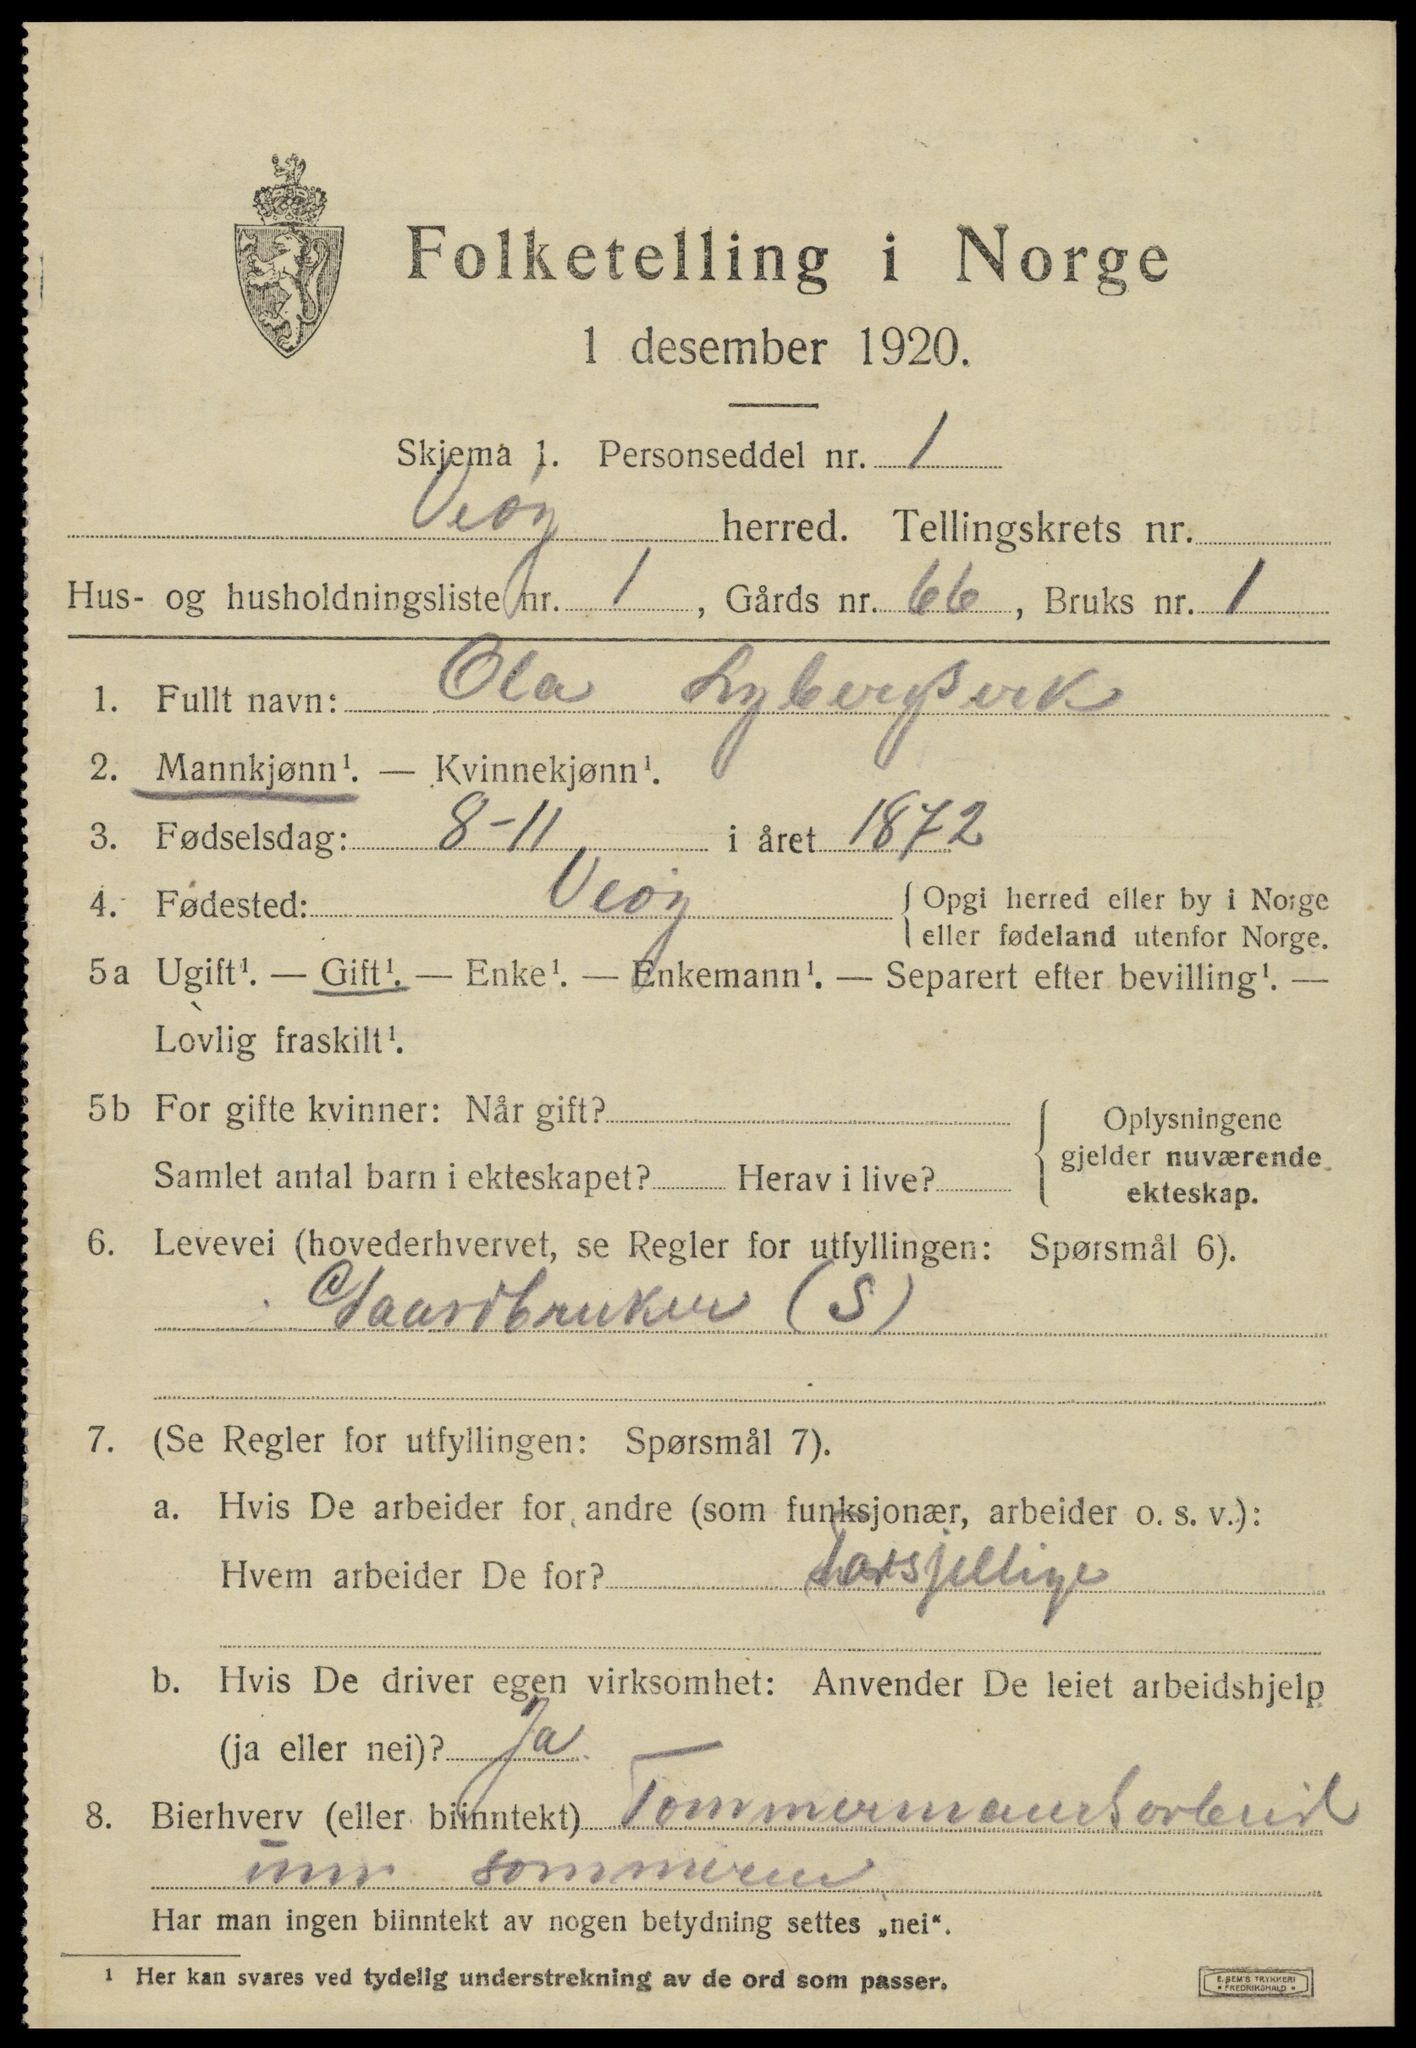 Folketelling i Norge
1 desember 1920.
Skjema 1. Personseddel nr. 1
Veøy herred. Tellingskrets nr.
Hus- og husholdningsliste nr. 1, Gårds nr. 66, Bruks nr. 1
1. Fullt navn: Ola
2. Mannkjønn¹. — Kvinnekjønn¹.
3. Fødselsdag: 8-11 i året 1872
4. Fødested: Veøy { Opgi herred eller by i Norge
eller fødeland utenfor Norge.
5a Ugift¹. — Gift¹. — Enke¹. — Enkemann¹. — Separert efter bevilling¹. —
Lovlig fraskilt¹.
5b For gifte kvinner: Når gift? { Oplysningene
gjelder nuværende
Samlet antal barn i ekteskapet? Herav i live? ekteskap.
6. Levevei (hovederhvervet, se Regler for utfyllingen: Spørsmål 6).
Gaardbruker (S)
7. (Se Regler for utfyllingen: Spørsmål 7).
a. Hvis De arbeider for andre (som funksjonær, arbeider o. s. v.):
Hvem arbeider De for? forsjellige
b. Hvis De driver egen virksomhet: Anvender De leiet arbeidshjelp
(ja eller nei)? Ja
8. Bierhverv (eller biinntekt) Tømmermandsarbeid
um sommeren
Har man ingen biinntekt av nogen betydning settes „nei“.
¹ Her kan svares ved tydelig understrekning av de ord som passer.
E. SEM'S TRYKKERI
FREDRIKSHALD